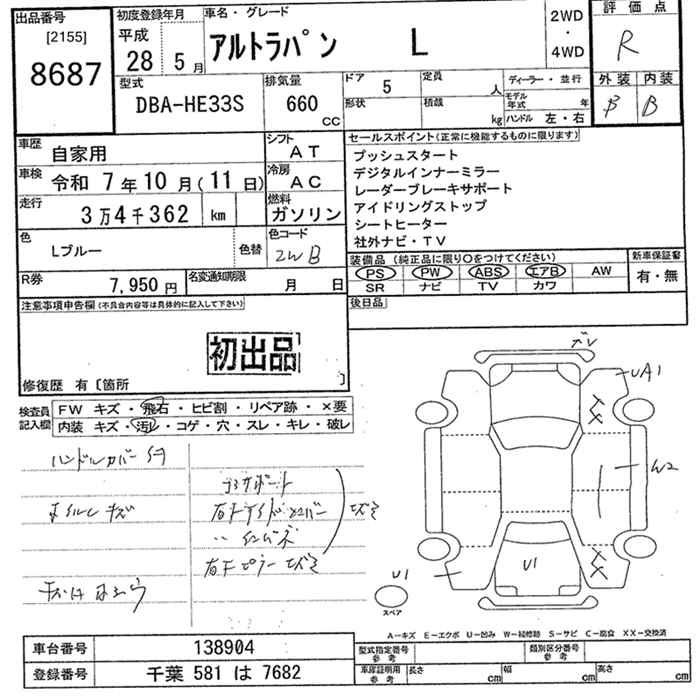 出品番号
[2155]
8687
初度登録年月
平成
28 5月
車名・グレード
アルトラパン L
2WD
・
4WD
評価点
R
型式
DBA-HE33S
排気量
660
CC
ドア 5
定員 人
形状
積載 kg
ディーラー・並行
モデル年式 年
ハンドル 左・右
外装 内装
B B
車歴 自家用
シフト AT
車検 令和 7年10月(11日)
冷房 AC
走行 3万4千362 km
燃料 ガソリン
色 Lブルー 色替
色コード 2WB
R券 7,950円
名変通知期限 月 日
セールスポイント(正常に機能するものに限ります)
プッシュスタート
デジタルインナーミラー
レーダーブレーキサポート
アイドリングストップ
シートヒーター
社外ナビ・TV
装備品(純正品に限り○をつけてください)
PS PW ABS エアB AW
SR ナビ TV カワ
新車保証書
有・無
後日品
注意事項申告欄(不具合内容等は具体的に記入して下さい)
初出品
修復歴 有〔箇所 〕
検査員記入欄
FW キズ・飛石・ヒビ割・リペア跡・×要
内装 キズ・汚レ・コゲ・穴・スレ・キレ・破レ
ハンドルカバー
キズ
UA1
W2
U1
U1
スペア
A-キズ E-エクボ U-凹み W-補修跡 S-サビ C-腐食 XX-交換済
車台番号 138904
登録番号 千葉 581 は 7682
型式指定番号参考
類別区分番号参考
車庫証明用参考
長さ cm 幅 cm 高さ cm